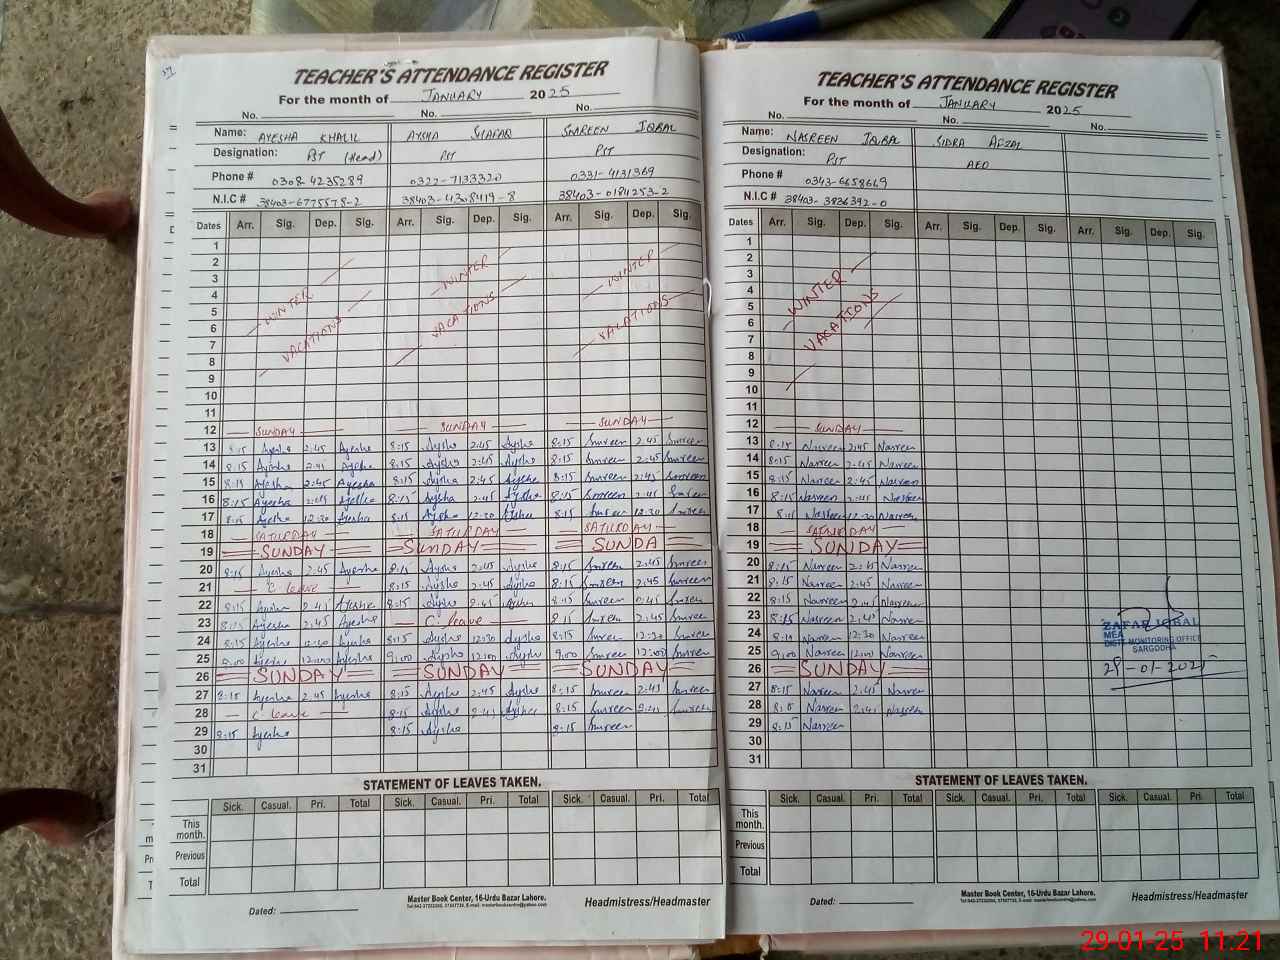 TEACHER'S ATTENDANCE REGISTER
For the month of JANUARY 2025
No. No. No.
Name: AYESHA KHALIL AYSHA SHAFAQ SMREEN IQBAL
Designation: PST (Head) PST PST
Phone # 0308-4235289 0322-7133320 0331-4131369
N.I.C # 38403-6775578-2 38403-4308419-8 38403-0184253-2
Dates Arr. Sig. Dep. Sig. Arr. Sig. Dep. Sig. Arr. Sig. Dep. Sig.
1
2
3
4
5
6
7
8
9
10
11
WINTER VACATIONS WINTER VACATIONS WINTER VACATIONS
12 SUNDAY SUNDAY SUNDAY
13 8:15 Ayesha 2:45 Ayesha 8:15 Aysha 2:45 Aysha 8:15 Smreen 2:45 Smreen
14 8:15 Ayesha 2:45 Ayesha 8:15 Aysha 2:45 Aysha 8:15 Smreen 2:45 Smreen
15 8:15 Ayesha 2:45 Ayesha 8:15 Aysha 2:45 Aysha 8:15 Smreen 2:45 Smreen
16 8:15 Ayesha 2:45 Ayesha 8:15 Aysha 2:45 Aysha 8:15 Smreen 2:45 Smreen
17 8:15 Ayesha 12:30 Ayesha 8:15 Aysha 12:30 Aysha 8:15 Smreen 12:30 Smreen
18 SATURDAY SATURDAY SATURDAY
19 SUNDAY SUNDAY SUNDA
20 8:15 Ayesha 2:45 Ayesha 8:15 Aysha 2:45 Aysha 8:15 Smreen 2:45 Smreen
21 C leave 8:15 Aysha 2:45 Aysha 8:15 Smreen 2:45 Smreen
22 8:15 Ayesha 2:45 Ayesha 8:15 Aysha 2:45 Aysha 8:15 Smreen 2:45 Smreen
23 8:15 Ayesha 2:45 Ayesha C. leave 8:15 Smreen 2:45 Smreen
24 8:15 Ayesha 12:30 Ayesha 8:15 Aysha 12:30 Aysha 8:15 Smreen 12:30 Smreen
25 9:00 Ayesha 12:00 Ayesha 9:00 Aysha 12:00 Aysha 9:00 Smreen 12:00 Smreen
26 SUNDAY SUNDAY SUNDAY
27 8:15 Ayesha 2:45 Ayesha 8:15 Aysha 2:45 Aysha 8:15 Smreen 2:45 Smreen
28 C leave 8:15 Aysha 2:45 Aysha 8:15 Smreen 2:45 Smreen
29 8:15 Ayesha 8:15 Aysha 8:15 Smreen
30
31
STATEMENT OF LEAVES TAKEN.
Sick. Casual. Pri. Total Sick. Casual. Pri. Total Sick. Casual. Pri. Total
This month.
Previous
Total
Master Book Center, 16-Urdu Bazar Lahore.
Dated: Headmistress/Headmaster
TEACHER'S ATTENDANCE REGISTER
For the month of JANUARY 2025
No. No. No.
Name: NASREEN IQBAL SIDRA AFZAL
Designation: PST AEO
Phone # 0343-6658669
N.I.C # 38403-3836392-0
Dates Arr. Sig. Dep. Sig. Arr. Sig. Dep. Sig. Arr. Sig. Dep. Sig.
1
2
3
4
5
6
7
8
9
10
11
WINTER VACATIONS
12 SUNDAY
13 8:15 Nasreen 2:45 Nasreen
14 8:15 Nasreen 2:45 Nasreen
15 8:15 Nasreen 2:45 Nasreen
16 8:15 Nasreen 2:45 Nasreen
17 8:15 Nasreen 12:30 Nasreen
18 SATURDAY
19 SUNDAY
20 8:15 Nasreen 2:45 Nasreen
21 8:15 Nasreen 2:45 Nasreen
22 8:15 Nasreen 2:45 Nasreen
23 8:15 Nasreen 2:45 Nasreen
24 8:15 Nasreen 12:30 Nasreen
25 9:00 Nasreen 12:00 Nasreen
26 SUNDAY
27 8:15 Nasreen 2:45 Nasreen
28 8:15 Nasreen 2:45 Nasreen
29 8:15 Nasreen
30
31
ZAFAR IQBAL
MEA
DISTT. MONITORING OFFICE
SARGODHA
29-01-2025
STATEMENT OF LEAVES TAKEN.
Sick. Casual. Pri. Total Sick. Casual. Pri. Total Sick. Casual. Pri. Total
This month.
Previous
Total
Master Book Center, 16-Urdu Bazar Lahore.
Dated: Headmistress/Headmaster
29-01-25 11:21